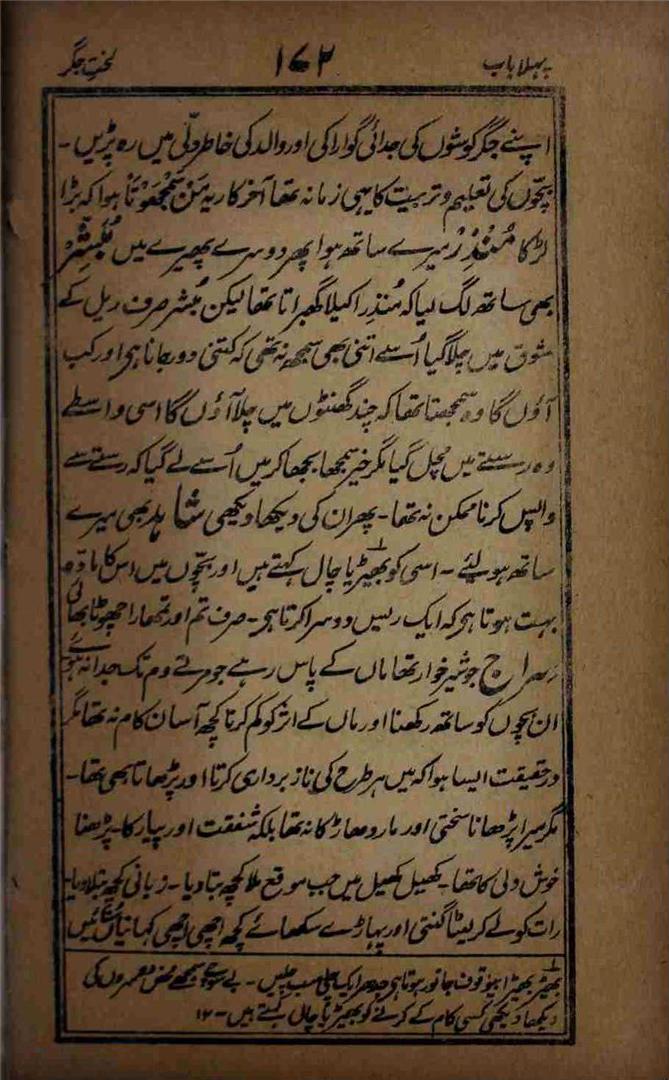 پہلا باب ۱۶۲ لخت جگر
اپنے جگر گوشوں کی جدائی گوارا کی اور والد کی خاطر دلّی میں رہ پڑیں ۔
بچّوں کی تعلیم و تربیت کا یہی زمانہ تھا آخر کار یہ مَن سَمجھَوتا ہوا کہ بڑا
لڑکا مُنْذِر میرے ساتھ ہوا پھر دوسرے پھیرے میں مُبَشِّر
بھی ساتھ لگ لیا کہ مُنذِر اکیلا گھبراتا تھا لیکن مُبشر صرف ریل کے
شوق میں چلا گیا اُسے اتنی بھی سمجھ نہ تھی کہ کتنی دور جانا ہی اور کب
آؤں گا وہ سمجھتا تھا کہ چند گھنٹوں میں چلا آؤں گا اسی واسطے
وہ رستے میں مچل گیا مگر خیر سمجھا بجھا کر میں اُسے لے گیا کہ رستے سے
واپس کرنا ممکن نہ تھا ۔ پھر ان کی دیکھا دیکھی شاہد بھی میرے
ساتھ ہو لئے ۔ اسی کو بھیڑیا چال کہتے ہیں اور بچّوں میں اس کا مادّہ
بہت ہوتا ہی کہ ایک ریس دوسرا کرتا ہی ۔ صرف تم اور تمھارا چھوٹا بھائی
سراج جو شیر خوار تھا ماں کے پاس رہے جو مرتے دم تک جدا نہ ہوئے
ان بچوں کو ساتھ رکھنا اور ماں کے اثر کو کم کرنا کچھ آسان کام نہ تھا مگر
درحقیقت ایسا ہوا کہ میں ہر طرح کی ناز برداری کرتا اور پڑھاتا بھی تھا ۔
مگر میرا پڑھانا سختی اور مار دھاڑ کا نہ تھا بلکہ شفقت اور پیار کا ۔ پڑھنا
خوش دلی کا تھا ۔ کھیل کھیل میں جب موقع ملا کچھ بتا دیا ۔ زبانی کچھ بتلا دیا ۔
رات کو لے کر لیٹا گنتی اور پہاڑے سکھائے کچھ اچھی اچھی کہانیاں سُنائیں
۱؎ بھیڑ بھیڑا بیوقوف جانور ہوتا ہی جدھر ایک چلی سب چلیں ۔ بے سوچے سمجھے محض دوسروں کی
دیکھا دیکھی کسی کام کے کرنے کو بھیڑیا چال کہتے ہیں ۔ ۱۲